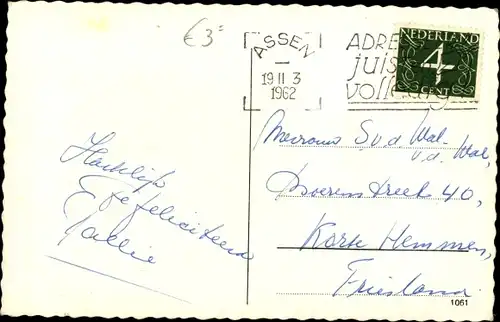 €3=
ASSEN
19 II 3
1962
ADRE
juis
volledig
NEDERLAND
4
CENT
Mevrouw S.v.d Wal-
v.d. Wal,
40,
Korte Hemmen,
Friesland.
Hartelijk
Gefeliciteerd
1061